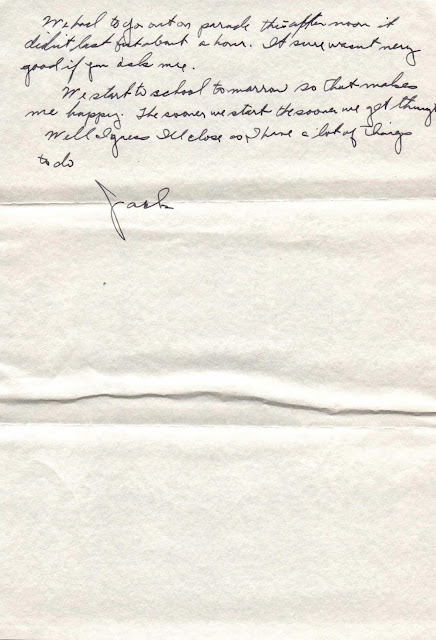 We had to go out on parade this after noon it
didn't last but about a hour. It sure wasn't very
good if you ask me.
We start to school tomarrow so that makes
me happy. The sooner we start the sooner we get through
Well I guess I'll close as I have a lot of things
to do
Jack